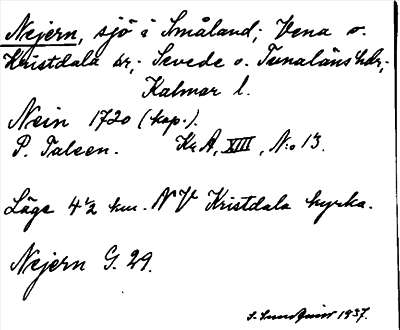 Nejern, sjö i Småland; Vena o.
Kristdala sr; Sevede o. Tunaläns hdr;
Kalmar l.
Nein 1720 (kop.).
P. Talsen. KrA, XIII, N:o 13.
Läge 4½ km. NV Kristdala kyrka.
Nejern G. 29.
S. Sundqvist 1937.